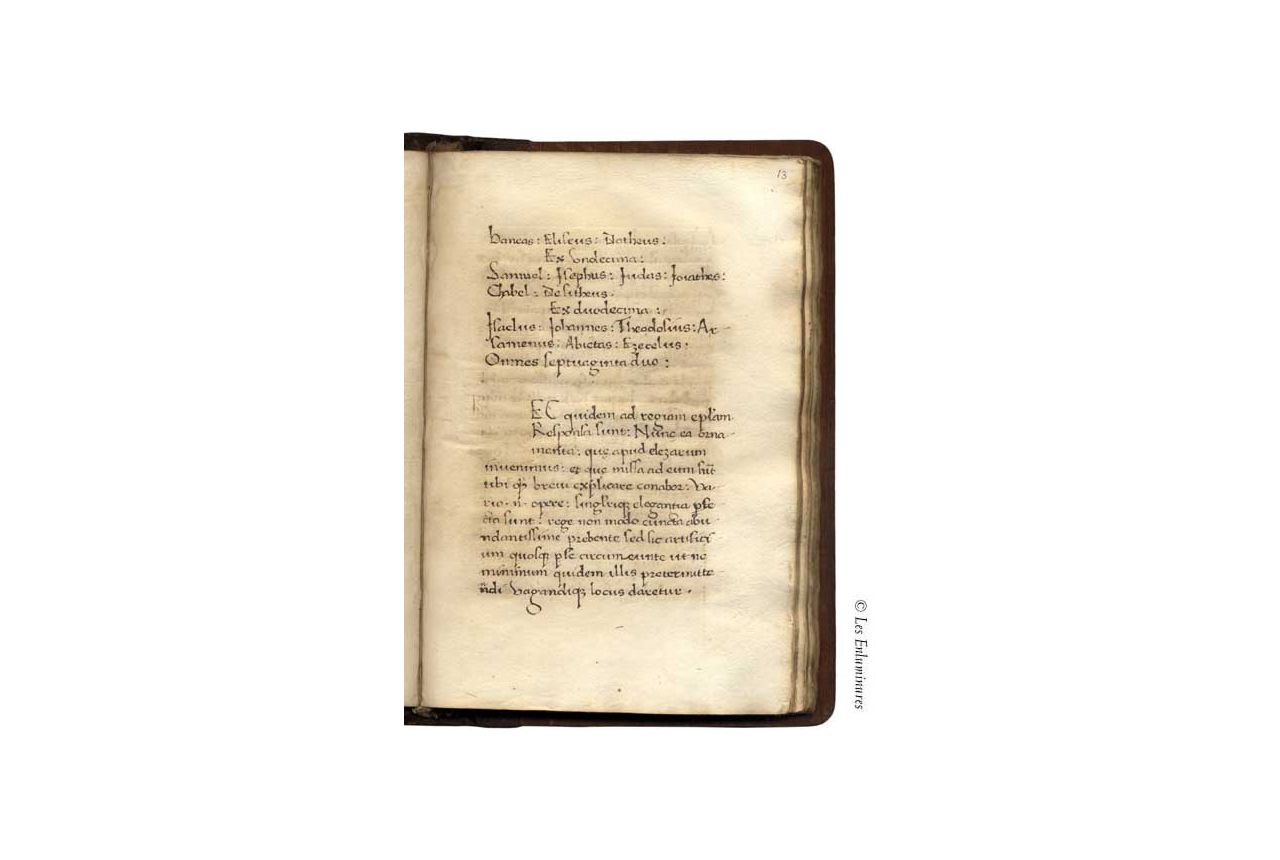 13
baneas: Eliseus: Datheus:
Ex Undecima:
Samuel: Isephus: Judas: Jonathes:
Chabel: Dositheus.
Ex duodecima:
Isaelus: Johannes: Theodosius: Ar-
samenus: Abietas: Ezecelus:
Omnes septuaginta duo:
ET quidem ad regiam eplam
Responsa sunt: Nunc ea orna-
menta: quę apud elezarum
invenimus: et que missa ad eum sũt
tibi breui explicare conabor: Va-
rio. n. opere: elegantia pfe
cta sunt: rege non modo cuncta abu
ndantissime prebente sed sic artifici
um quosq; circumeunte ut ne
minimum quidem illis pretermitte
ñdi Vagandiq; locus daretur.
© Les Enluminures